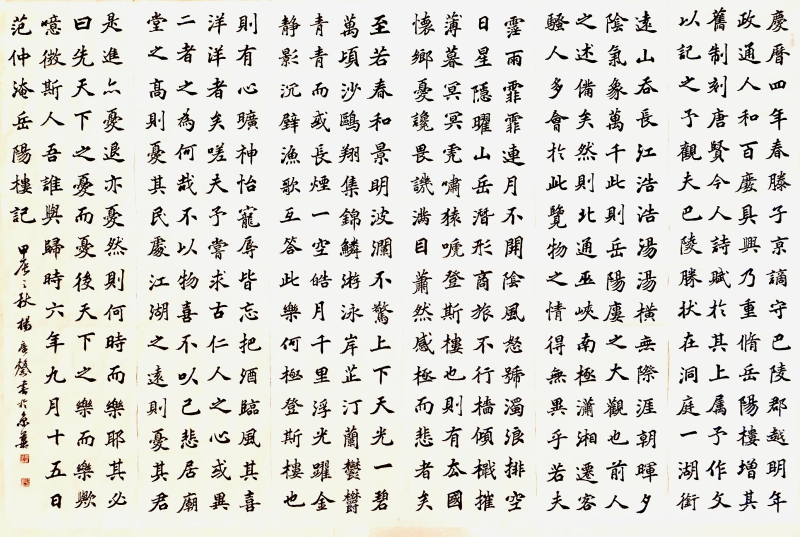 慶曆四年春滕子京謫守巴陵郡越明年
政通人和百廢具興乃重脩岳陽樓增其
舊制刻唐賢今人詩賦於其上属予作文
以記之予觀夫巴陵勝狀在洞庭一湖銜
遠山吞長江浩浩湯湯橫無際涯朝暉夕
陰氣象萬千此則岳陽樓之大觀也前人
之述備矣然則北通巫峽南極瀟湘遷客
騷人多會於此覽物之情得無異乎若夫
霪雨霏霏連月不開陰風怒號濁浪排空
日星隱曜山岳潛形商旅不行檣傾檝摧
薄暮冥冥虎嘯猿啼登斯樓也則有去國
懷鄉憂讒畏譏滿目蕭然感極而悲者矣
至若春和景明波瀾不驚上下天光一碧
萬頃沙鷗翔集錦鱗游泳岸芷汀蘭鬱鬱
青青而或長煙一空皓月千里浮光躍金
靜影沉璧漁歌互答此樂何極登斯樓也
則有心曠神怡寵辱皆忘把酒臨風其喜
洋洋者矣嗟夫予嘗求古仁人之心或異
二者之為何哉不以物喜不以己悲居廟
堂之高則憂其民處江湖之遠則憂其君
是進亦憂退亦憂然則何時而樂耶其必
曰先天下之憂而憂後天下之樂而樂歟
噫微斯人吾誰與歸時六年九月十五日
范仲淹岳陽樓記
秋楊書於京華